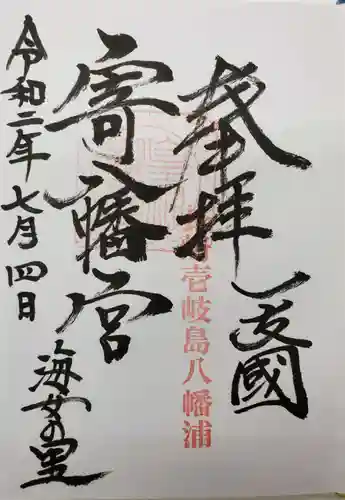 奉拝
一支國
長崎壱岐島八幡浦
寄八幡宮
海女の里
令和二年七月四日